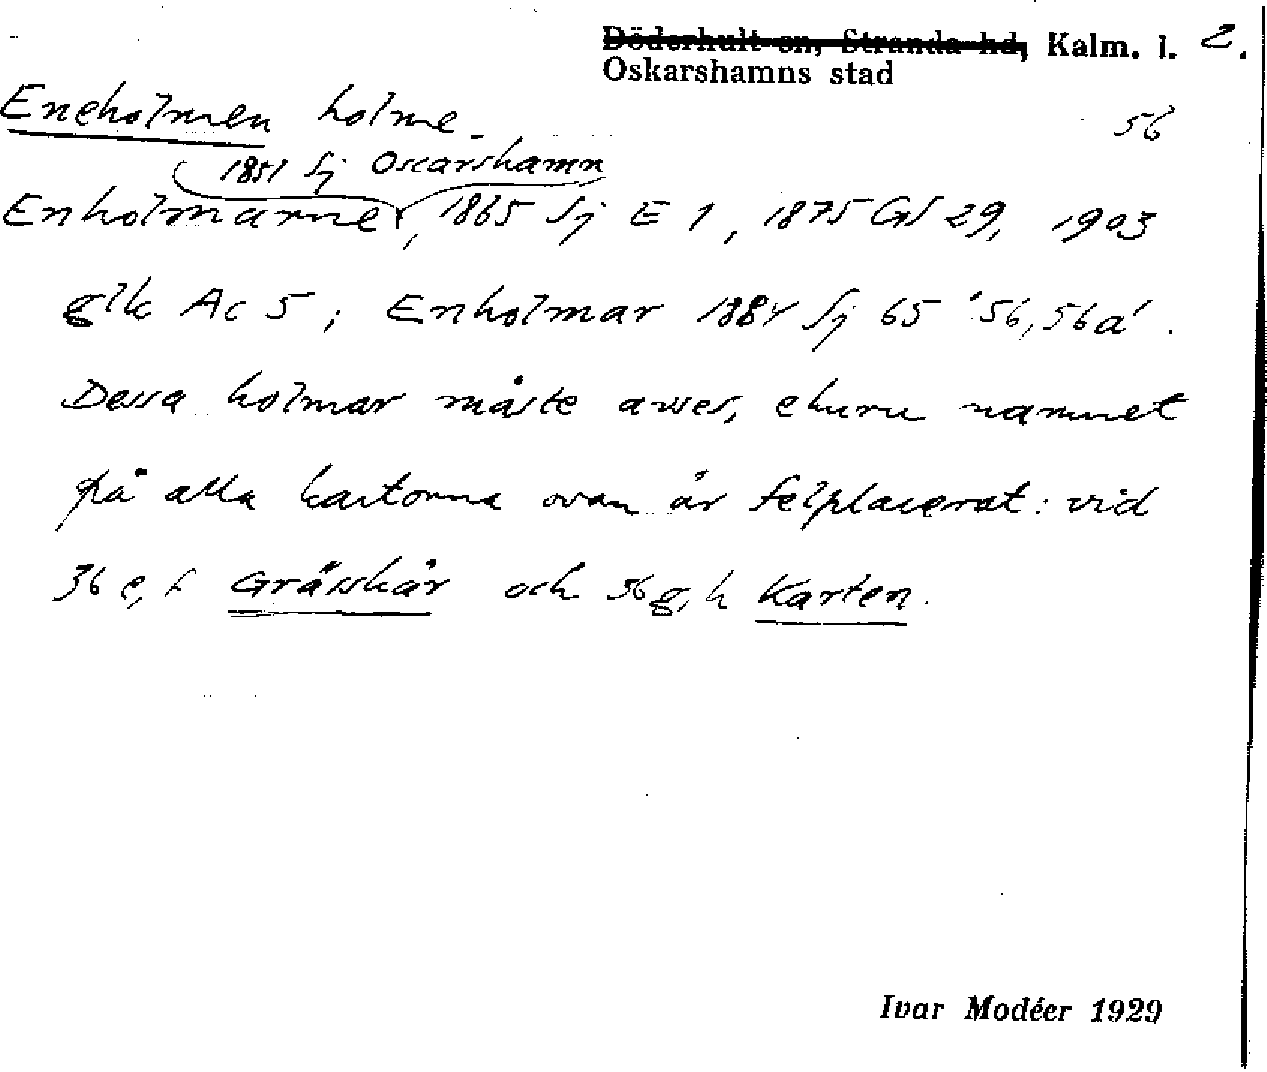 Döderhult sn, Stranda hd, Kalm. l. 2.
Oskarshamns stad
Eneholmen holme. 56
1851 Sj Oscarshamn
Enholmarne, 1865 Sj E 1, 1875 GS 29, 1903
glk Ac 5; Enholmar 1884 Sj 65 '56, 56a'.
Dessa holmar måste avses, ehuru namnet
på alla kartorna ovan är felplacerat: vid
36 e, f Gråsskär och 36 g, h Karten.
Ivar Modéer 1929